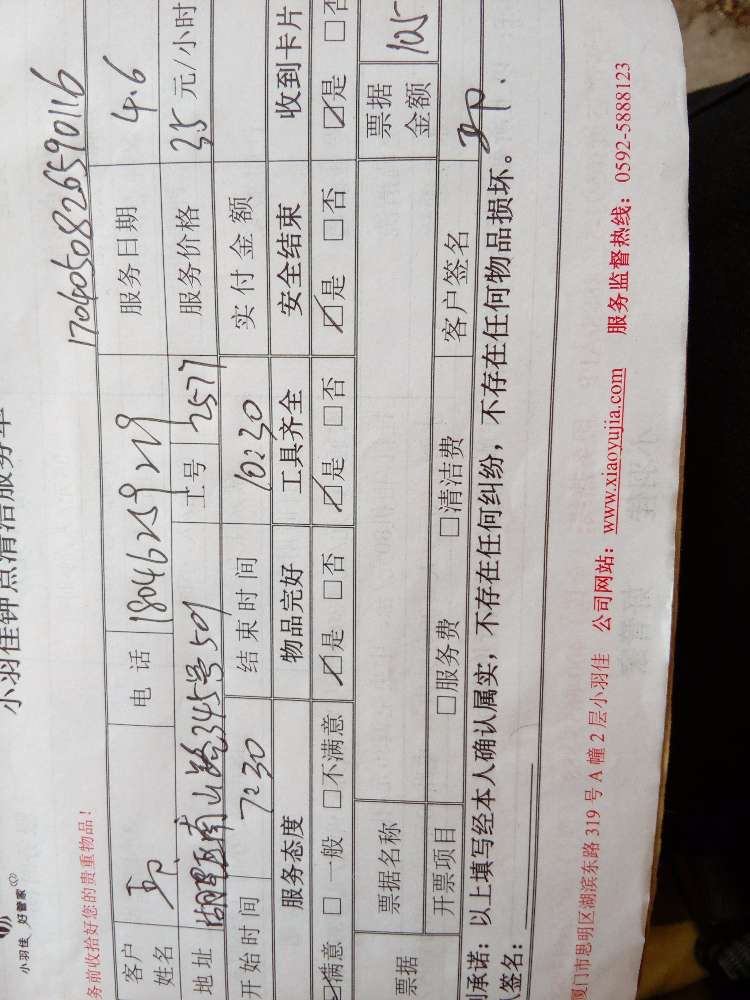 小羽佳 好管家
小羽佳钟点清洁服务单
1704050826590116
务前收拾好您的贵重物品!
客户姓名 电话 18046259229 服务日期 4.6
地址 湖里区南山路345号501 工号 2577 服务价格 35 元/小时
开始时间 7:30 结束时间 10:30 实付金额
服务态度 物品完好 工具齐全 安全结束 收到卡片
☑满意 □一般 □不满意 ☑是 □否 ☑是 □否 ☑是 □否 ☑是 □否
票据 票据名称 票据金额 105
开票项目 □服务费 □清洁费 客户签名
承诺:以上填写经本人确认属实,不存在任何纠纷,不存在任何物品损坏。
签名:
厦门市思明区湖滨东路 319 号 A 幢 2 层小羽佳 公司网站:www.xiaoyujia.com 服务监督热线:0592-5888123